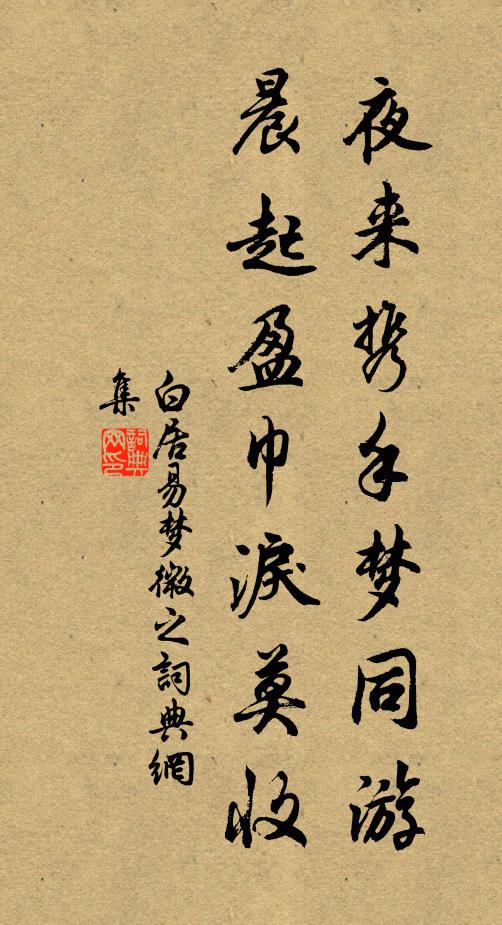 夜来携手梦同游
晨起盈巾淚莫收
白居易梦微之詞典網
集
詞典
网印